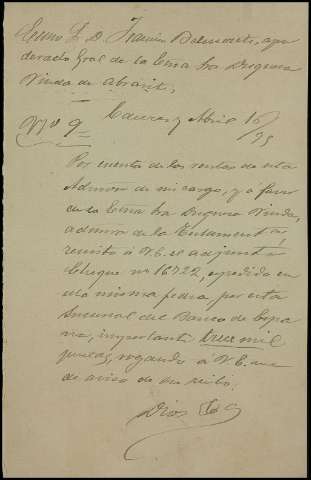 Excmo Sr D. Damian Balmaseda, apo
derado Gral de la Excma Sra Duquesa
Viuda de Abrantes.
Nº 9 = Cáceres y Abril 16/95
Por cuenta de las rentas de esta
Admon de mi cargo, y a favor
de la Excma Sra Duquesa Viuda,
admora de la Testamentª,
remito á V.E. el adjunto
cheque nº 16722, expedido en
esta misma fecha por esta
Sucursal del Banco de Espa
ña, importante tres mil
pesetas, rogando á V.E. me
de aviso de su recibo.
Dios &